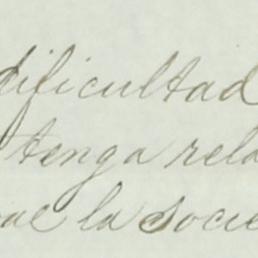 dificultad
tenga rela
la socie